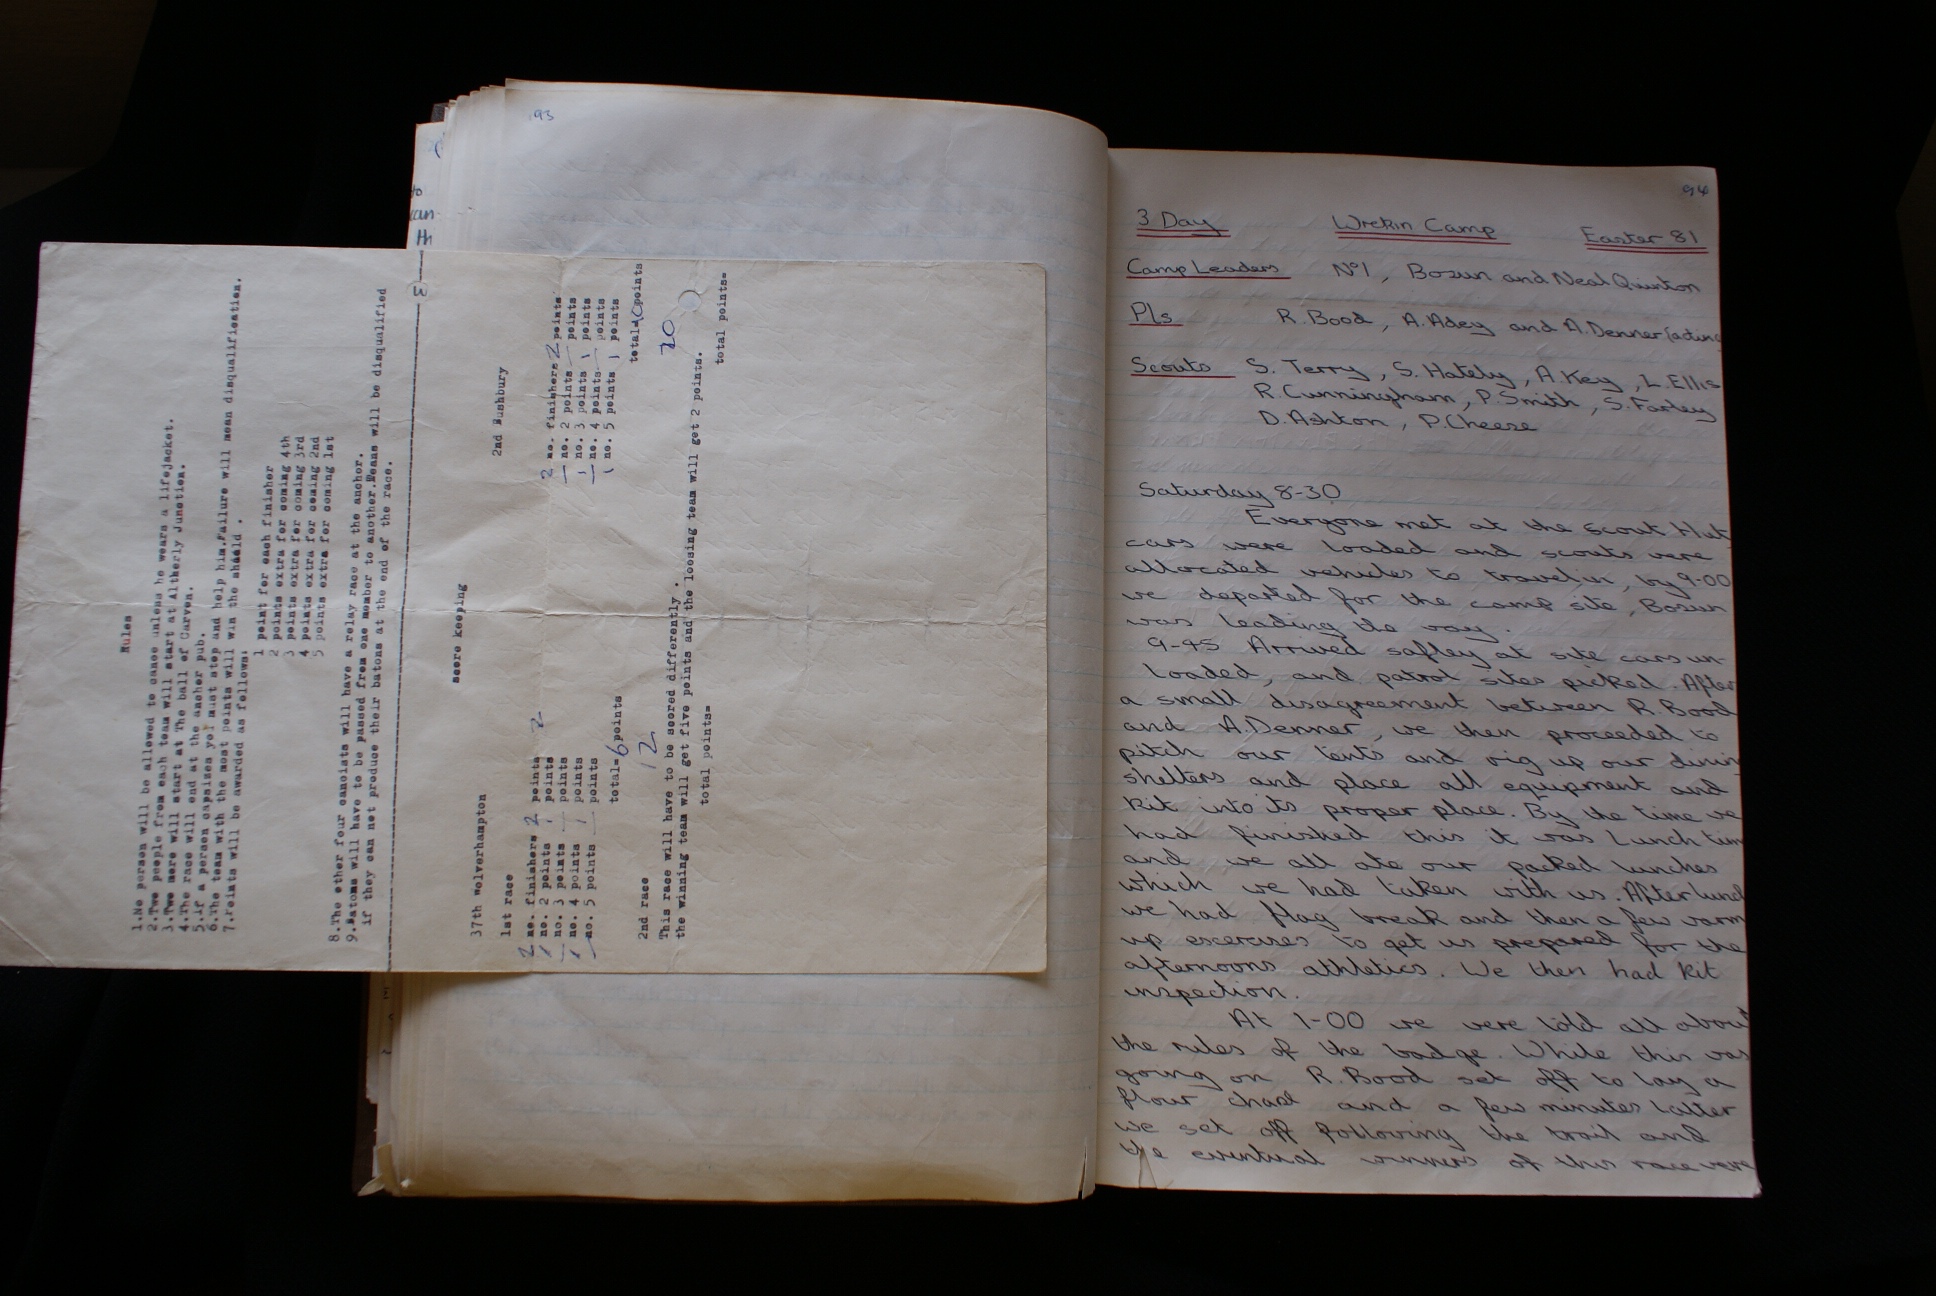 93
to
can
th
3
Rules
1.No person will be allowed to canoe unless he wears a lifejacket.
2.Two people from each team will start at Altherly Junction.
3.Two more will start at The ball of Carven.
4.The race will end at the anchor pub.
5.if a person capsizes yo! must stop and help him.Failure will mean disqualification.
6.The team with the most points will win the sheild .
7.Points will be awarded as follows:
1 point for each finisher
2 points extra for coming 4th
3 points extra for coming 3rd
4 points extra for coming 2nd
5 points extra for coming 1st
8.The other four canoists will have a relay race at the anchor.
9.Batons will have to be passed from one member to another.Teams will be disqualified
if they can not produce their batons at the end of the race.
score keeping
37th wolverhampton
2nd Bushbury
1st race
2 no. finishers 2 points 2
1 no. 2 points 1 points
— no. 3 points — points
1 no. 4 points 1 points
— no. 5 points — points
total=6points
12
2 no. finishers 2 points
— no. 2 points — points
1 no. 3 points 1 points
— no. 4 points — points
1 no. 5 points 1 points
total=10points
20
2nd race
This race will have to be scored differently .
the winning team will get five points and the loosing team will get 2 points.
total points=
total points=
94
3 Day Wrekin Camp Easter 81
Camp Leaders No1, Bosun and Neal Quinton
Pls R.Bood, A.Adey and A.Denner (acting
Scouts S.Terry, S.Hately, A.Key, L.Ellis
R.Cunningham, P.Smith, S.Farley
D.Ashton, P.Cheese
Saturday 8-30
Everyone met at the Scout Hut
cars were loaded and scouts were
allocated vehicles to travel in, by 9-00
we departed for the camp site, Bosun
was leading the way.
9-45 Arrived safley at site cars un-
loaded, and patrol sites picked. After
a small disagreement between R.Bood
and A.Denner, we then proceeded to
pitch our tents and rig up our dining
shelters and place all equipment and
kit into its proper place. By the time we
had finished this it was Lunch time
and we all ate our packed lunches
which we had taken with us. After lunch
we had flag break and then a few warm
up excercises to get us prepared for the
afternoons athletics. We then had kit
inspection.
At 1-00 we were told all about
the rules of the badge. While this was
going on R.Bood set off to lay a
flour chase and a few minutes latter
we set off following the trail and
the eventual winners of this race were